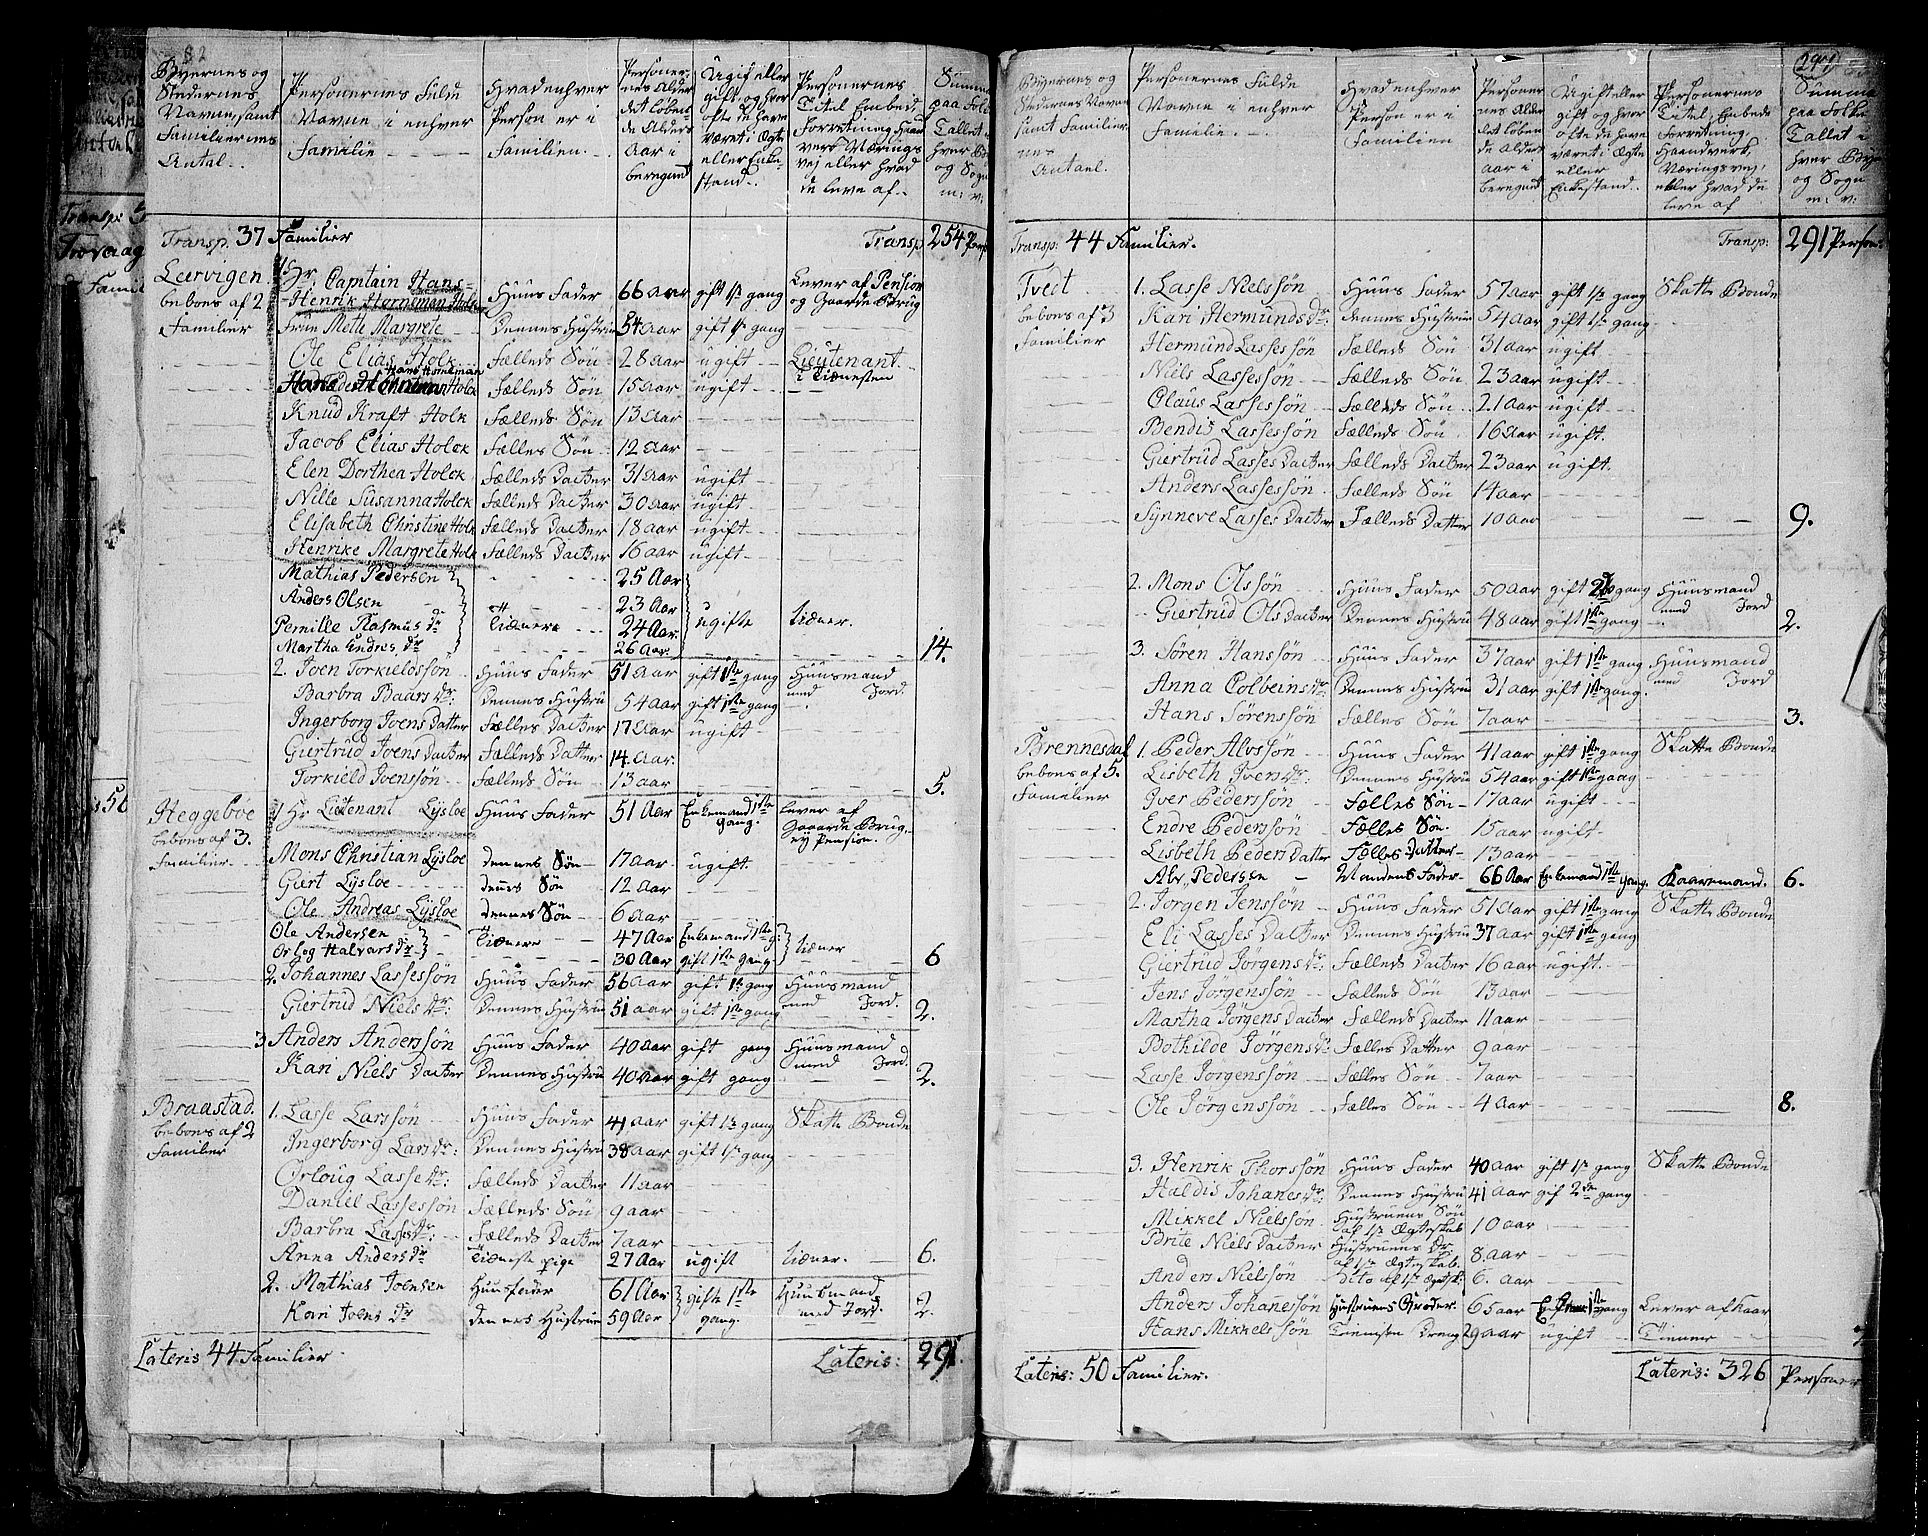 82
Byernes og Stedernes Navne, samt Familiernes Antal. | Personernes Fulde Navne i enhver Familie | Hvad enhver Person er i Familien. | Personernes Alder det løbende Alders Aar i beregned | Ugift eller gift og hvor ofte de have været i Ægte eller Enkestand. | Personernes Titel Embed, Forretning Haandverk Nærings vej eller hvad de leve af. | Summa paa Folke Tallet i hver Bye og Sogn m: v:
Transp. 37 Familier | Transp 254 Pers
Leervigen beboes af 2 Familier
1 Hr. Capitain Hans Henrik Horneman Holck | Huus Fader | 66 aar | gift 1ste gang | Lever af Pension og Gaards Brug
Frue Mette Margrete | Dennes Hustrue | 54 aar | gift 1ste gang
Ole Elias Holck | Fælleds Søn | 28 aar | ugift | Lieutenant i Tienesten
Hans Horneman Holck | Fælleds Søn | 15 aar | ugift
Knud Kraft Holck | Fælleds Søn | 13 aar
Jacob Elias Holck | Fælles Søn | 12 aar
Elen Dorthea Holck | Fælleds Datter | 31 aar | ugift
Nille Susanna Holck | Fælleds Datter | 30 aar | ugift
Elisabeth Christine Holck | Fælleds Datter | 18 aar | ugift
Henrike Margrete Holck | Fælleds Datter | 16 aar | ugift
Mathias Pedersen | 25 Aar
Anders Olsen | 23 Aar
Pernille Rasmus dr | Tienere | 24 Aar | ugifte | tiener.
Martha Endres dr | 26 Aar | 14.
2. Joen Torkieldssøn | Huus Fader | 51 aar | gift 1ste gang | Huusmand med Jord.
Barbra Baars dr: | Dennes Hustru | 54 aar | gift 1ste gang
Ingerborg Joens Datter | Fælles Datter | 17 aar | ugift
Giertrud Joens Datter | Fælleds Datter | 14 Aar.
Torkield Joenssøn | Fælleds Søn | 13 aar | 5.
Heggebøe bebos af 3. Familier
1 Hr Lieutenant Lysloe | Huus Fader | 51 Aar | Enkemand 1ste gang. | lever af Gaards Brug, ey Pension.
Mons Christian Lysloe | Dennes Søn | 17 aar. | ugift
Giert Lysloe | Dennes Søn | 12 Aar
Ole Andreas Lysloe | Dennes Søn | 6 aar
Ole Andersen | Tienere | 47 Aar | Enkemand 1ste g: | tiener
Orlog Halvars dr | 30 Aar | gift 1ste gang | 6
2. Johannes Lassessøn | Huus Fader | 56 aar | gift 1ste gang | Huusmand med Jord.
Giertrud Niels dr: | Dennes Hustrue | 51 aar | gift 1ste gang | 2.
3 Anders Anderssøn | Huus Fader | 40 aar | gift gang | Huusmand med Jord.
Kari Niels Datter | Dennes Hustru | 40 aar | gift gang | 2.
Braastad. bebos af 2 Familier
1. Lasse Larssøn | Huus Fader | 41 aar | gift 1ste gang | Skatte Bonde
Ingerborg Lars dr: | Dennes Hustru | 38 aar | gift 1ste gang
Orloug Lasse dr: | Fælleds Datter | 11 aar
Daniel Lassessøn | Fælleds Søn | 9 aar
Barbra Lasse dr: | Fælleds Datter | 7 aar
Anna Anders dr | Tieneste pige | 27 Aar | ugift | tiener. | 6.
2. Mathias Joensen | Huusfader | 61 Aar | gifte 1ste gang. | Huusmand med Jord.
Kari Joens dr | dennes Hustrue | 59 Aar | 2.
Lateris 44 Familier | Lateris: 291.
291
Byernes og Stedernes Navne samt Familiernes Antael. | Personernes Fulde Navne i enhver Familie. | Hvad enhver Person er i Familien | Personernes Alder det løbende Alders aar i beregned | Ugift eller gift og hvor ofte de have været i Ægte eller Enkestand. | Personernes Titel, Embede Forretning. Haandverk, Nærings vej, eller hvad de leve af | Summa paa Folke Tallet i hver Bye og Sogn m: v:
Transp: 44 Familier. | Transp: 291 Person:
Tvedt bebos af 3 Familier
1. Lasse Nielssøn | Huus Fader | 57 aar | gift 1ste gang | Skatte Bonde
Kari Hermunds dr: | Dennes Hustrue | 54 aar | gift 1ste gang
Hermund Lassessøn | Fælleds Søn | 31 aar | ugift
Niels Lassessøn | Fælleds Søn | 23 aar | ugift
Olaus Lassessøn | Fælleds Søn | 21 aar | ugift
Bendis Lassessøn | Fælleds Søn | 16 aar | ugift.
Giertrud Lasses Datter | Fælleds Datter | 23 aar | ugift.
Anders Lassessøn | Fælleds Søn | 14 aar
Synneve Lasses Datter | Fælleds Datter | 10 aar | 9.
2. Mons Olssøn | Huus Fader | 50 aar | gift gang | Huusmand med Jord
Giertrud Ols Datter | Dennes Hustru | 48 aar | gift 1ste gang | 2.
3. Søren Hanssøn | Huus Fader | 37 aar | gift 1ste gang | Huusmand med Jord
Anna Colbeins dr: | Dennes Hustru | 31 aar | gift 1ste gang.
Hans Sørenssøn | Fælles Søn | 7 aar | 3.
Brennesdal bebos af 5. Familier
1. Peder Alvssøn | Huus Fader | 41 aar | gift 1ste gang | Skatte Bonde
Lisbeth Iven dr: | Dennes Hustru | 54 aar | gift 1ste gang
Iver Pederssøn | Fælles Søn | 17 aar | ugift
Endre Pederssøn | Fælles Søn. | 15 aar | ugift.
Lisbeth Peders Datter | Fælles Datter | 13 aar
Alv Pedersen | Mandens Fader | 66 Aar | Enkemand 1ste gang. | Kaaremand. | 6.
2. Jørgen Jenssøn | Huus Fader | 51 aar | gift 1ste gang | Skatte Bonde
Eli Lasses Datter | Dennes Hustrue | 37 aar | gift 1ste gang
Giertrud Jørgens dr: | Fælleds Datter | 16 aar | ugift.
Jens Jørgenssøn | Fælleds Søn | 13 aar
Martha Jørgens Datter | Fælleds Datter | 11 aar
Bothilde Jørgens dr | Fælles Datter | 9 aar
Lasse Jørgenssøn | Fælles Søn | 7 aar
Ole Jørgenssøn | Fælles Søn | 4 aar | 8.
3. Henrik Thorssøn | Huus Fader | 40 aar | gift 1ste gang | Skatte Bonde
Haldis Johanes dr: | Dennes Hustru | 41 aar | gif 2den gang
Mikkel Nielssøn | Hustruens Søn af 1ste Ægteskab | 10 aar
Brite Niels Datter | Hustruens Dr af 1ste Ægteskab. | 8 aar
Anders Nielssøn | Dito af 1ste Ægtesk: | 6. aar
Anders Johanessøn | Hustruens Broder | 65 aar | 1ste gang | Lever af Kaar
Hans Mikkelssøn | Tieniste Dreng | 29 aar | ugift | Tienner | 7
Lateris: 50 Familier. | Lateris: 326 Personer